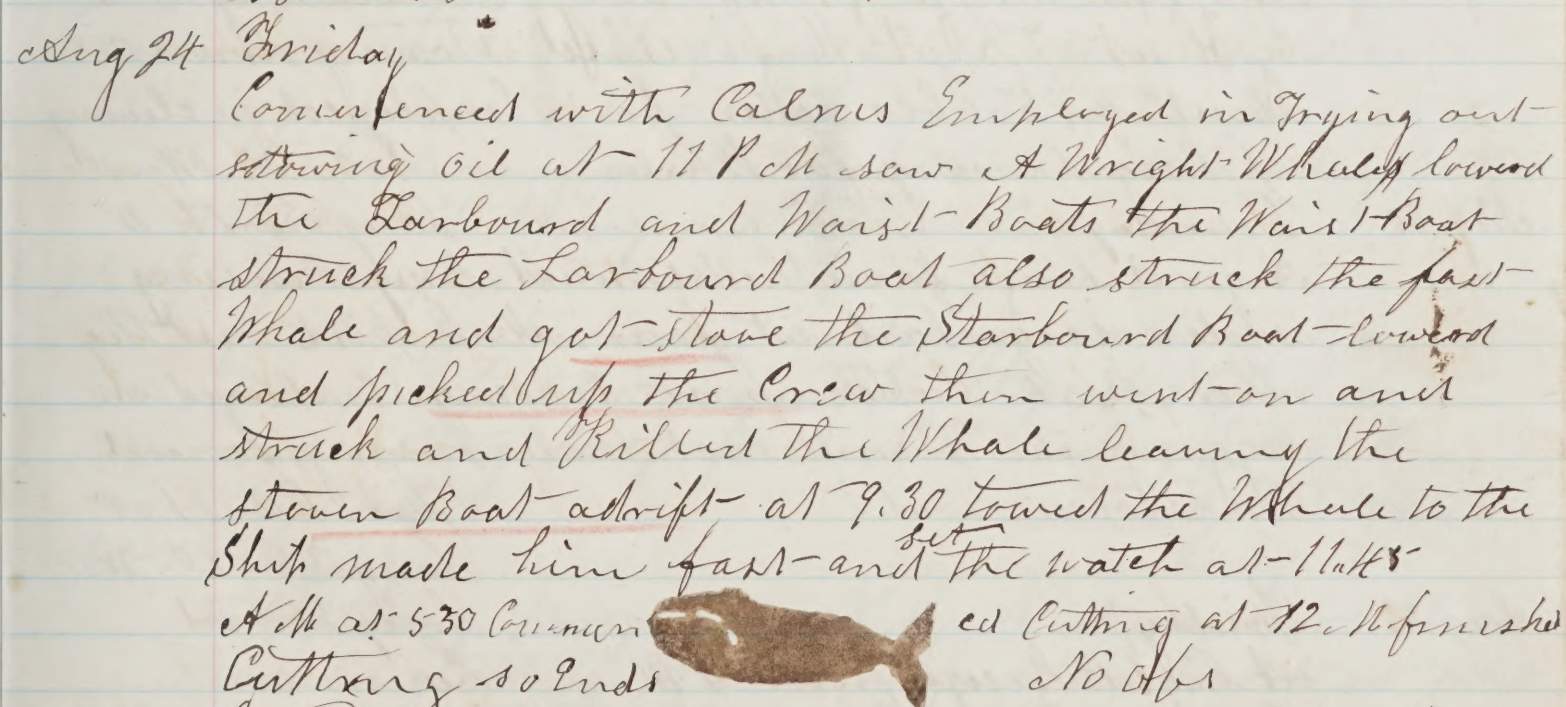 Aug 24 Friday
Commenced with Calms Employed in Trying out
stowing oil at 11 P M saw A Wright Whale lowerd
the Larbourd and Waist Boats the Waist Boat
struck the Larbourd Boat also struck the fast
Whale and got stove the Starbourd Boat lowerd
and picked up the Crew then went on and
struck and Killed the Whale leaving the
stoven Boat adrift at 9.30 towed the Whale to the
Ship made him fast and set the watch at 11.45
A M at 530 Commenced Cutting at 12. M finished
Cutting so Ends No Obs